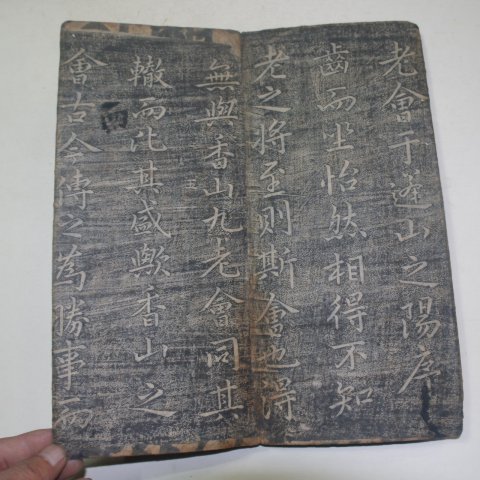 老會于蓬山之陽序
齒而坐怡然相得不知
老之將至則斯會也得
無與香山九老會同其
轍而比其盛歟香山之
會古今傳之為勝事而